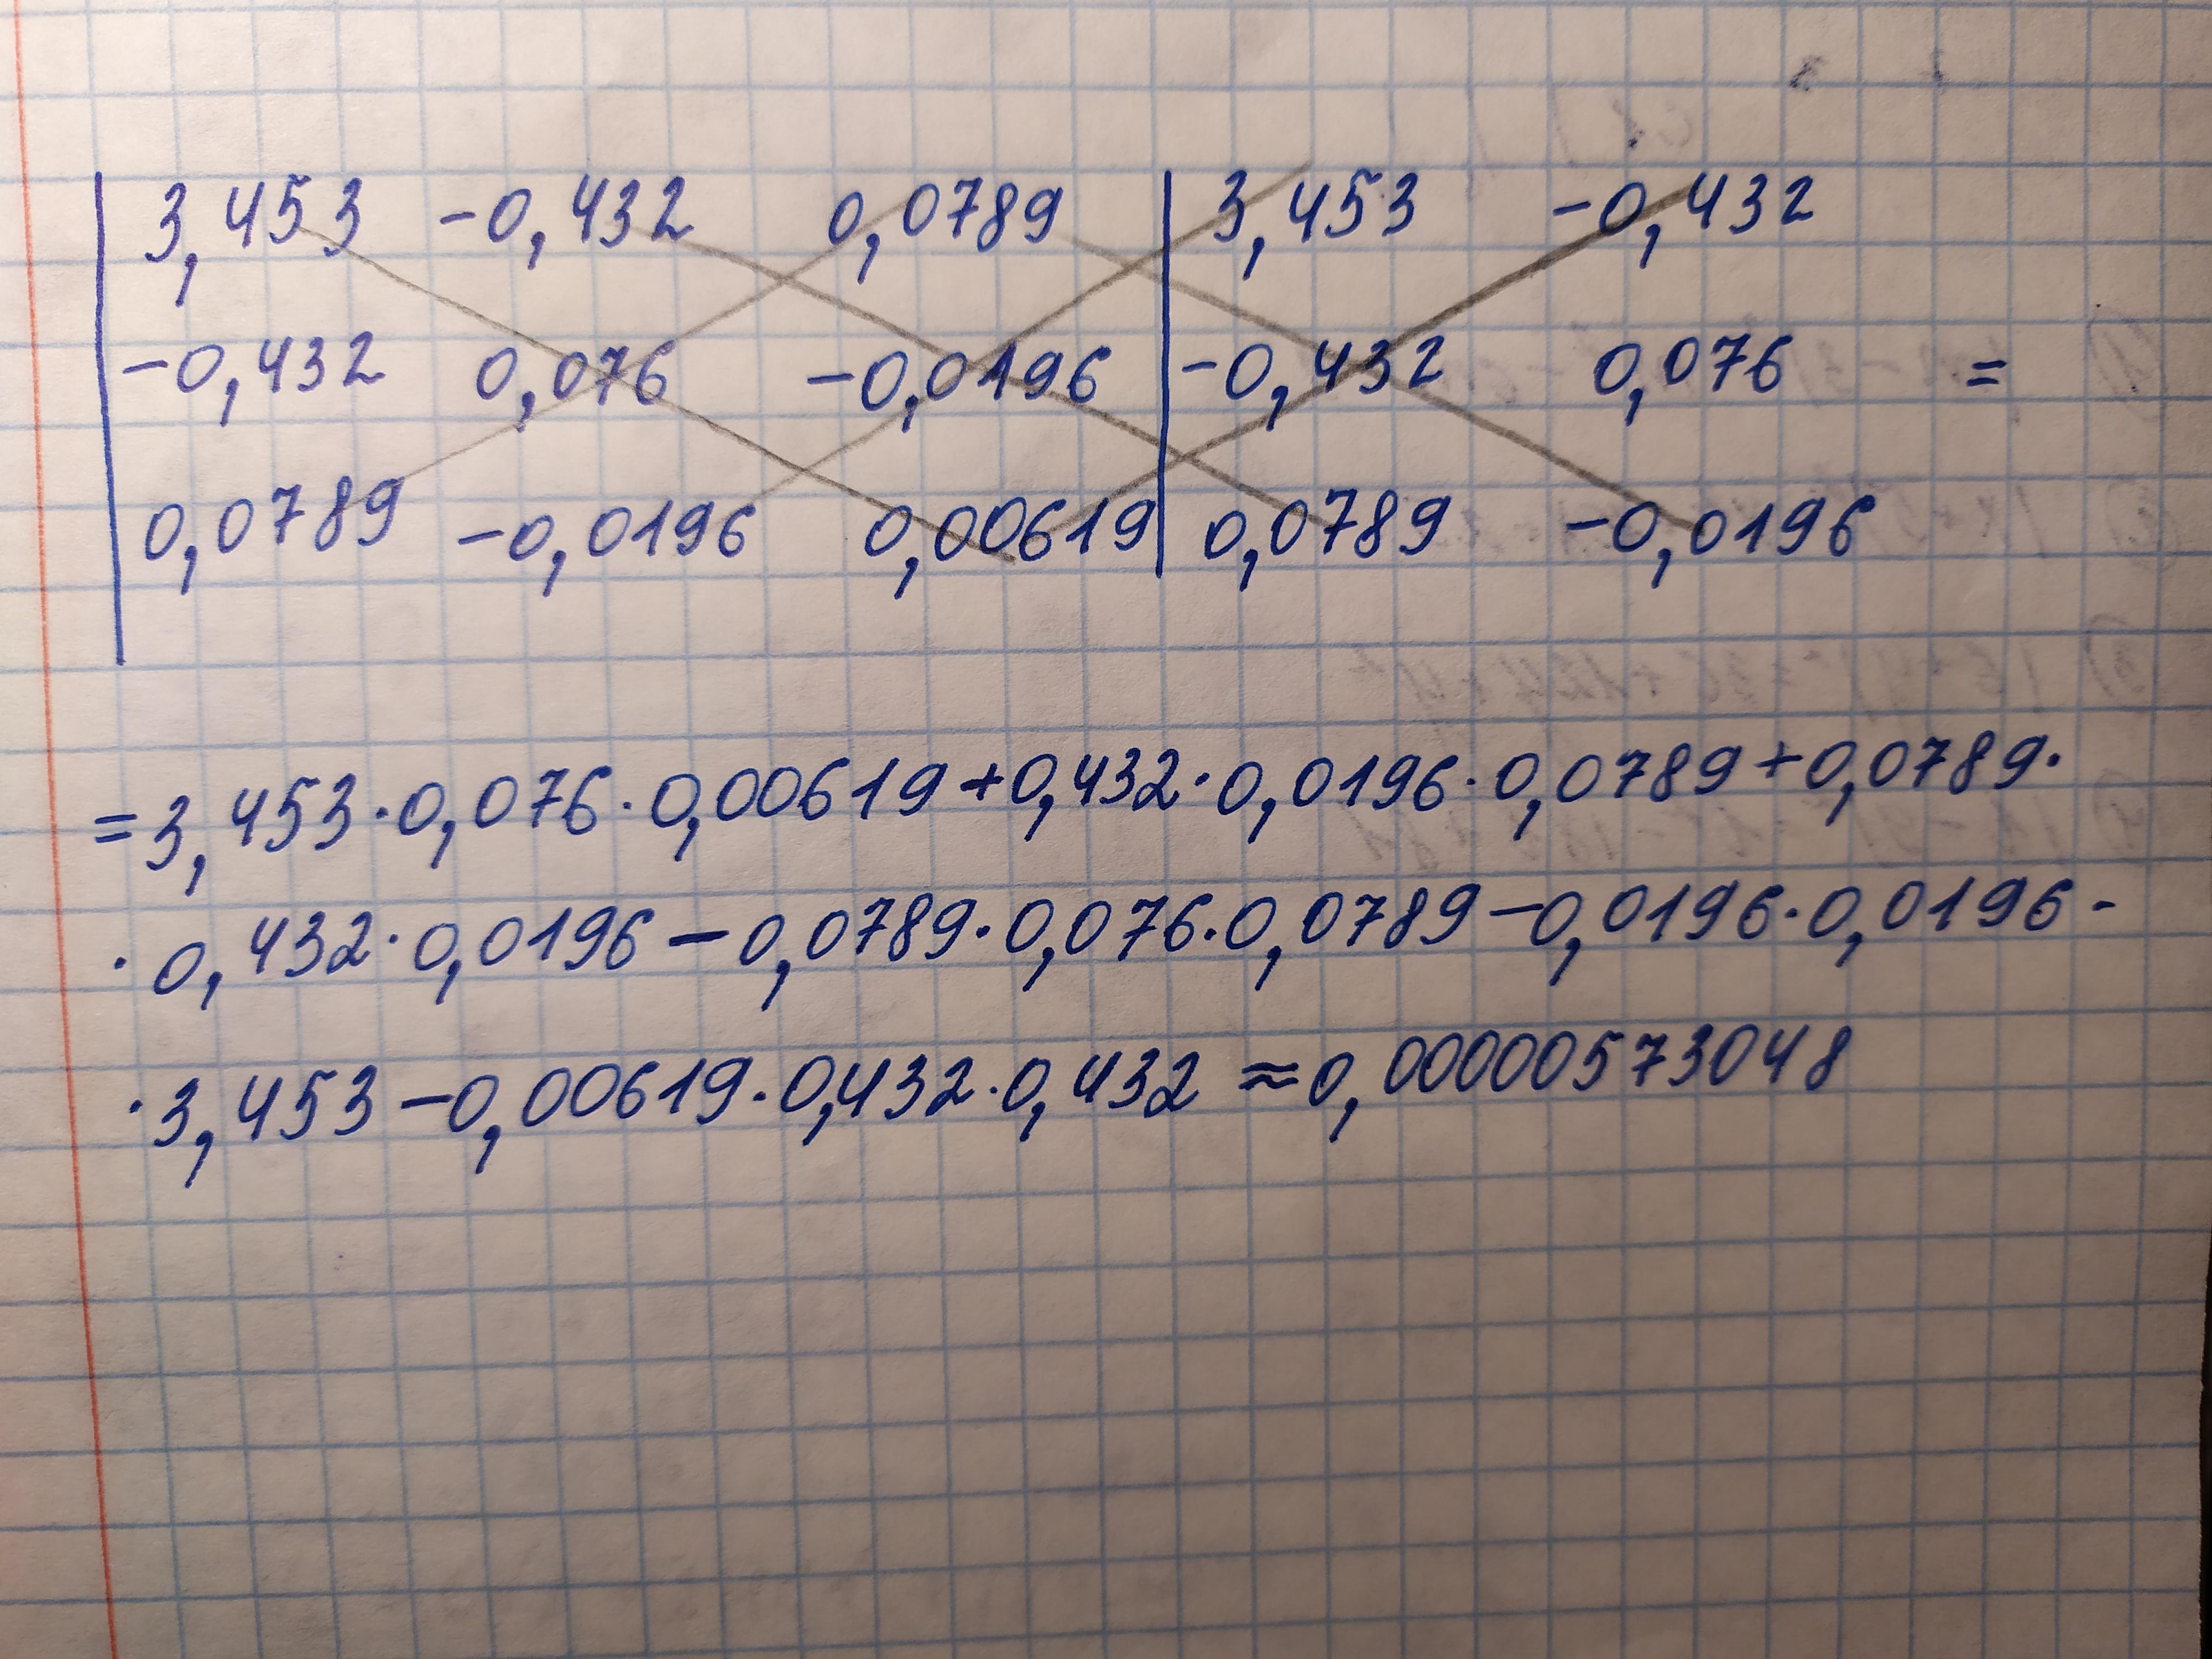 3,453 -0,432 0,0789 | 3,453 -0,432
-0,432 0,076 -0,0196 | -0,432 0,076 =
0,0789 -0,0196 0,00619 | 0,0789 -0,0196
=3,453·0,076·0,00619+0,432·0,0196·0,0789+0,0789·
·0,432·0,0196-0,0789·0,076·0,0789-0,0196·0,0196-
·3,453-0,00619·0,432·0,432≈0,00000573048